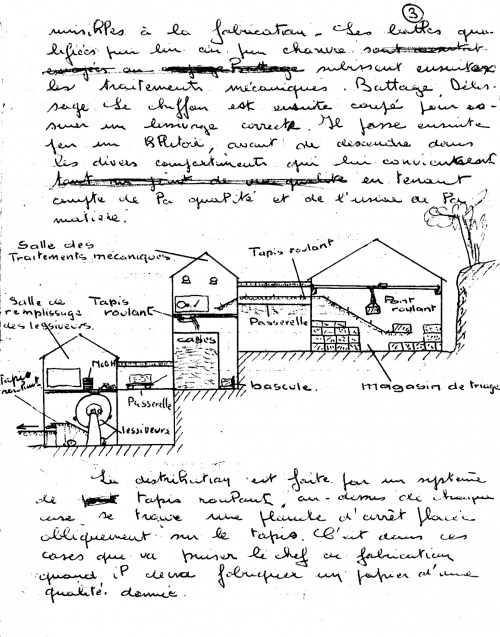 3
nuisibles à la fabrication. Les balles qua-
lifiées pur lin ou pur chanvre
subissent ensuite
les traitements mécaniques. Battage, Délis-
sage. Le chiffon est ensuite coupé pour as-
surer un lessivage correcte. Il passe ensuite
par un blutoir, avant de descendre dans
les divers compartiments qui lui conviennent
en tenant
compte de la qualité et de l'usure de la
matière.
Salle des
Traitements mécaniques.
Tapis roulant
Salle de
remplissage
des lessiveurs.
Tapis
roulant
Passerelle
Pont
roulant
cases
Tapis
roulant
NaOH
Passerelle
bascule.
magasin de triage
lessiveurs
La distribution est faite par un système
de tapis roulant, au-dessus de chaque
case se trouve une planche d'arrêt placée
obliquement sur le tapis. C'est dans ces
cases que va puiser le chef de fabrication
quand il devra fabriquer un papier d'une
qualité donnée.